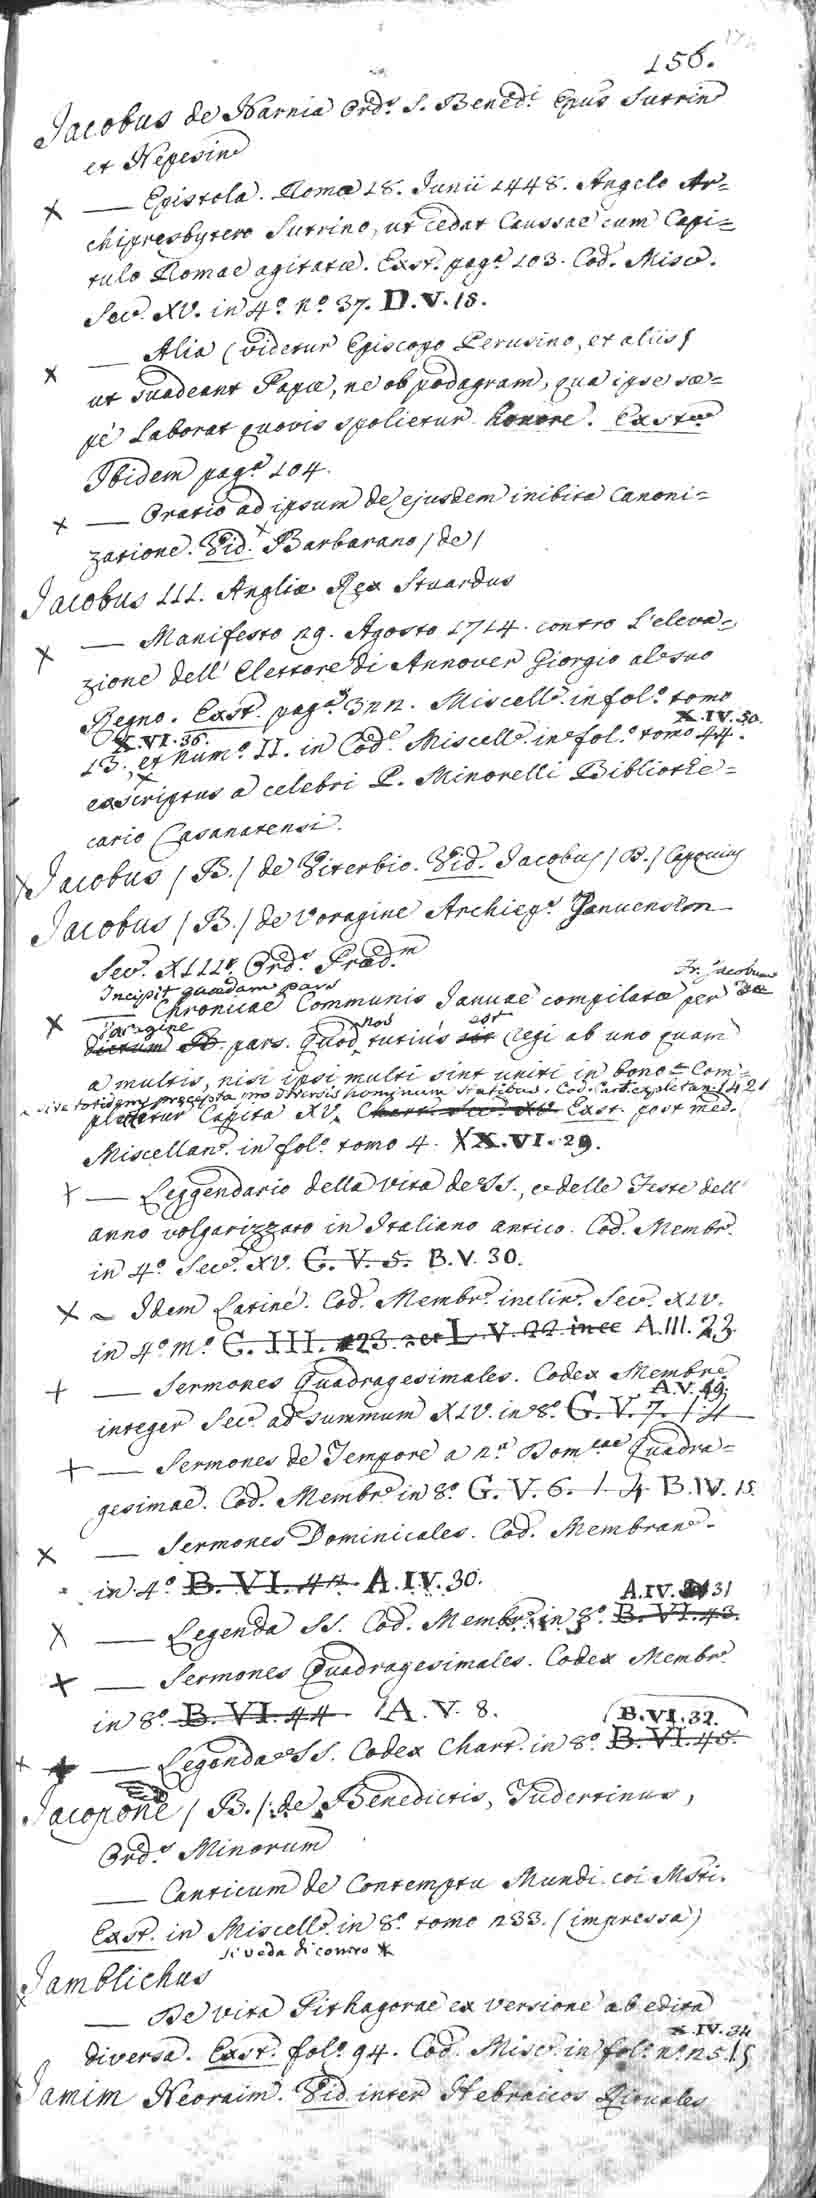 156.
Jacobus de Narnia Ord.s S. Bened.i Epus Sutrin
et Nepesin
X — Epistola. Romæ 18. Junii 1448. Angelo Ar=
chipresbytero Sutrino, ut cedat Caussae cum Capi=
tulo Romae agitatæ. Exst. pag.a 103. Cod. Misc.
Sec. XV. in 4.o n.o 37. D.V.18.
X — Alia (videtur Episcopo Perusino, et aliis)
ut suadeant Papæ, ne ob podagram, qua ipse sæ=
pé laborat quovis spolietur honore. Exst
Ibidem pag.a 104.
X — Oratio ad ipsum de ejusdem inibita Canoni=
zatione. Vid. Barbarano /de/
Jacobus III. Angliæ Rex Stuardus
X — Manifesto 29. Agosto 1714. contro l'eleva=
zione dell' Elettore di Annover Giorgio al suo
Regno. Exst. pag.a 322. Miscell. in fol.o tomo
X.VI.36. X.IV.50.
13. et Num.o II. in Cod.e Miscell. in fol.o tomo 44.
exscriptus a celebri P. Minorelli Bibliothe=
cario Casanatensi.
Jacobus /B./ de Viterbio. Vid. Jacobus /B./
Jacobus /B./ de Voragine Archiep.s Januensim
Sec. XIII. Ord.s Præd.m
Incipit quædam pars Fr. Jacobum
X — Chronicae Communis Januae compilatæ per de
Voragine non est
dictum B. pars. Quod tutiús sit Regi ab uno quam
a multis, nisi ipsi multi sint uniti in bono = Com=
sive totidem præcepta pro diversis hominum statibus. Cod. Cart. expletam 1421
pletitur Capita XV. Chart. Sec. XV. Exst. post med.
Miscellan. in fol.o tomo 4. X.VI.29.
+ — Leggendario della vita de SS., e delle Feste dell'
anno volgarizzato in Italiano antico. Cod. Membr.
in 4.o Sec. XV. G.V.5. B.V.30.
X — Idem Latiné. Cod. Membr. Sec. XIV.
in 4.o m.o G.III. 23. L.V.22 A.III.23
+ — Sermones Quadragesimales. Codex Membr.
A.V.49.
integer Sec. ad summum XIV. in 8.o G.V.7. 1.4
+ — Sermones de Tempore a 2.a Dom.cae Quadra=
gesimae. Cod. Membr. in 8.o G.V.6. 1 4 B.IV.15
X — Sermones Dominicales. Cod. Membran.
in 4.o B.VI.42 A.IV.30.
A.IV.31
X — Legenda SS. Cod. Membr. in 8.o B.VI.43.
X — Sermones Quadragesimales. Codex Membr.
in 8.o B.VI.44 A.V.8.
B.VI.32.
X — Legenda SS. Codex Chart. in 8.o B.VI.45.
Jacopone /B./ de Benedictis, Tudertinus,
Ord.s Minorum
— Canticum de Contemptu Mundi. coi Msti.
Exst. in Miscell. in 8.o tomo 233. (impressa)
si veda di contro X
Jamblichus
— De vita Pithagorae ex versione ab edita
X.IV.34
diversa. Exst. fol.o 94. Cod. Misc. in fol.o n.o 25.
Jamim Neoraim. Vid. inter Hebraicos Rituales